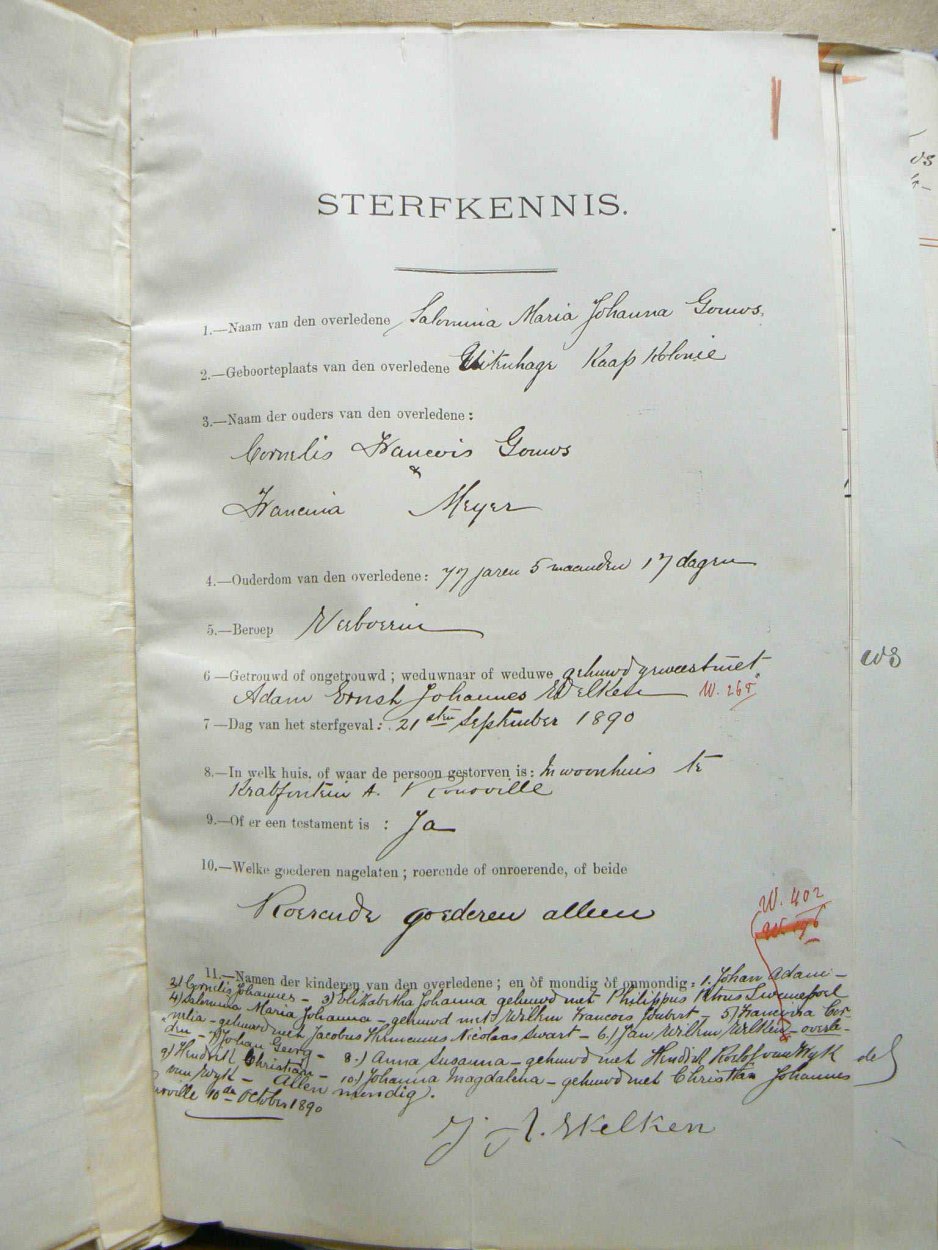 STERFKENNIS.
1.—Naam van den overledene Salomina Maria Johanna Gouws.
2.—Geboorteplaats van den overledene Uitenhage Kaap Kolonie
3.—Naam der ouders van den overledene:
Cornelis Francois Gouws
&
Francina Meyer
4.—Ouderdom van den overledene: 77 jaren 5 maanden 17 dagen
5.—Beroep Veeboerin
6—Getrouwd of ongetrouwd; weduwnaar of weduwe gehuwd geweest met
Adam Ernst Johannes Welken W. 265.
7—Dag van het sterfgeval: 21sten September 1890
8.—In welk huis, of waar de persoon gestorven is: In woonhuis te
Krabfontein A. Rouxville
9.—Of er een testament is : Ja
10.—Welke goederen nagelaten; roerende of onroerende, of beide
Roerende goederen alleen
W. 402
11.—Namen der kinderen van den overledene; en òf mondig òf onmondig: 1. Johan Adam—
2) Cornelis Johannes – 3) Elizabetha Johanna gehuwd met Philippus Petrus Swanepoel
4) Salomina Maria Johanna – gehuwd met Willem Francois Joubert – 5) Francina Cor-
nelia – gehuwd met Jacobus Hermanus Nicolaas Swart – 6) Jan Willem Welken – overle-
den – 7) Johan Georg – 8.) Anna Susanna – gehuwd met Hendrik Roelof van Wyk
9) Hendrik Christiaan – 10) Johanna Magdalena – gehuwd met Christiaan Johannes de
van Wyk – Allen mondig.
Rouxville 10de October 1890
J. A. Welken
ws
ws